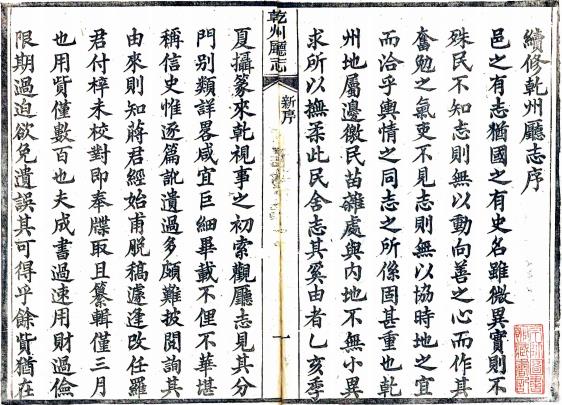 續修乾州廳志序
邑之有志猶國之有史名雖微異實則不
殊民不知志則無以動向善之心而作其
奮勉之氣吏不見志則無以協時地之宜
而洽乎輿情之同志之所係固甚重也乾
州地屬邊徼民苗雜處與内地不無小異
求所以撫柔此民舍志其奚由者乙亥季
乾州廳志
新序
一
夏攝篆來乾視事之初索觀廳志見其分
門别類詳畧咸宜巨細畢載不俚不華堪
稱信史惟逐篇訛遺過多頗難披閲詢其
由來則知蔣君經始甫脱稿遽逢改任羅
君付梓未校對即奉牒取且纂輯僅三月
也用貲僅數百也夫成書過速用財過儉
限期過迫欲免遺誤其可得乎餘貲猶在